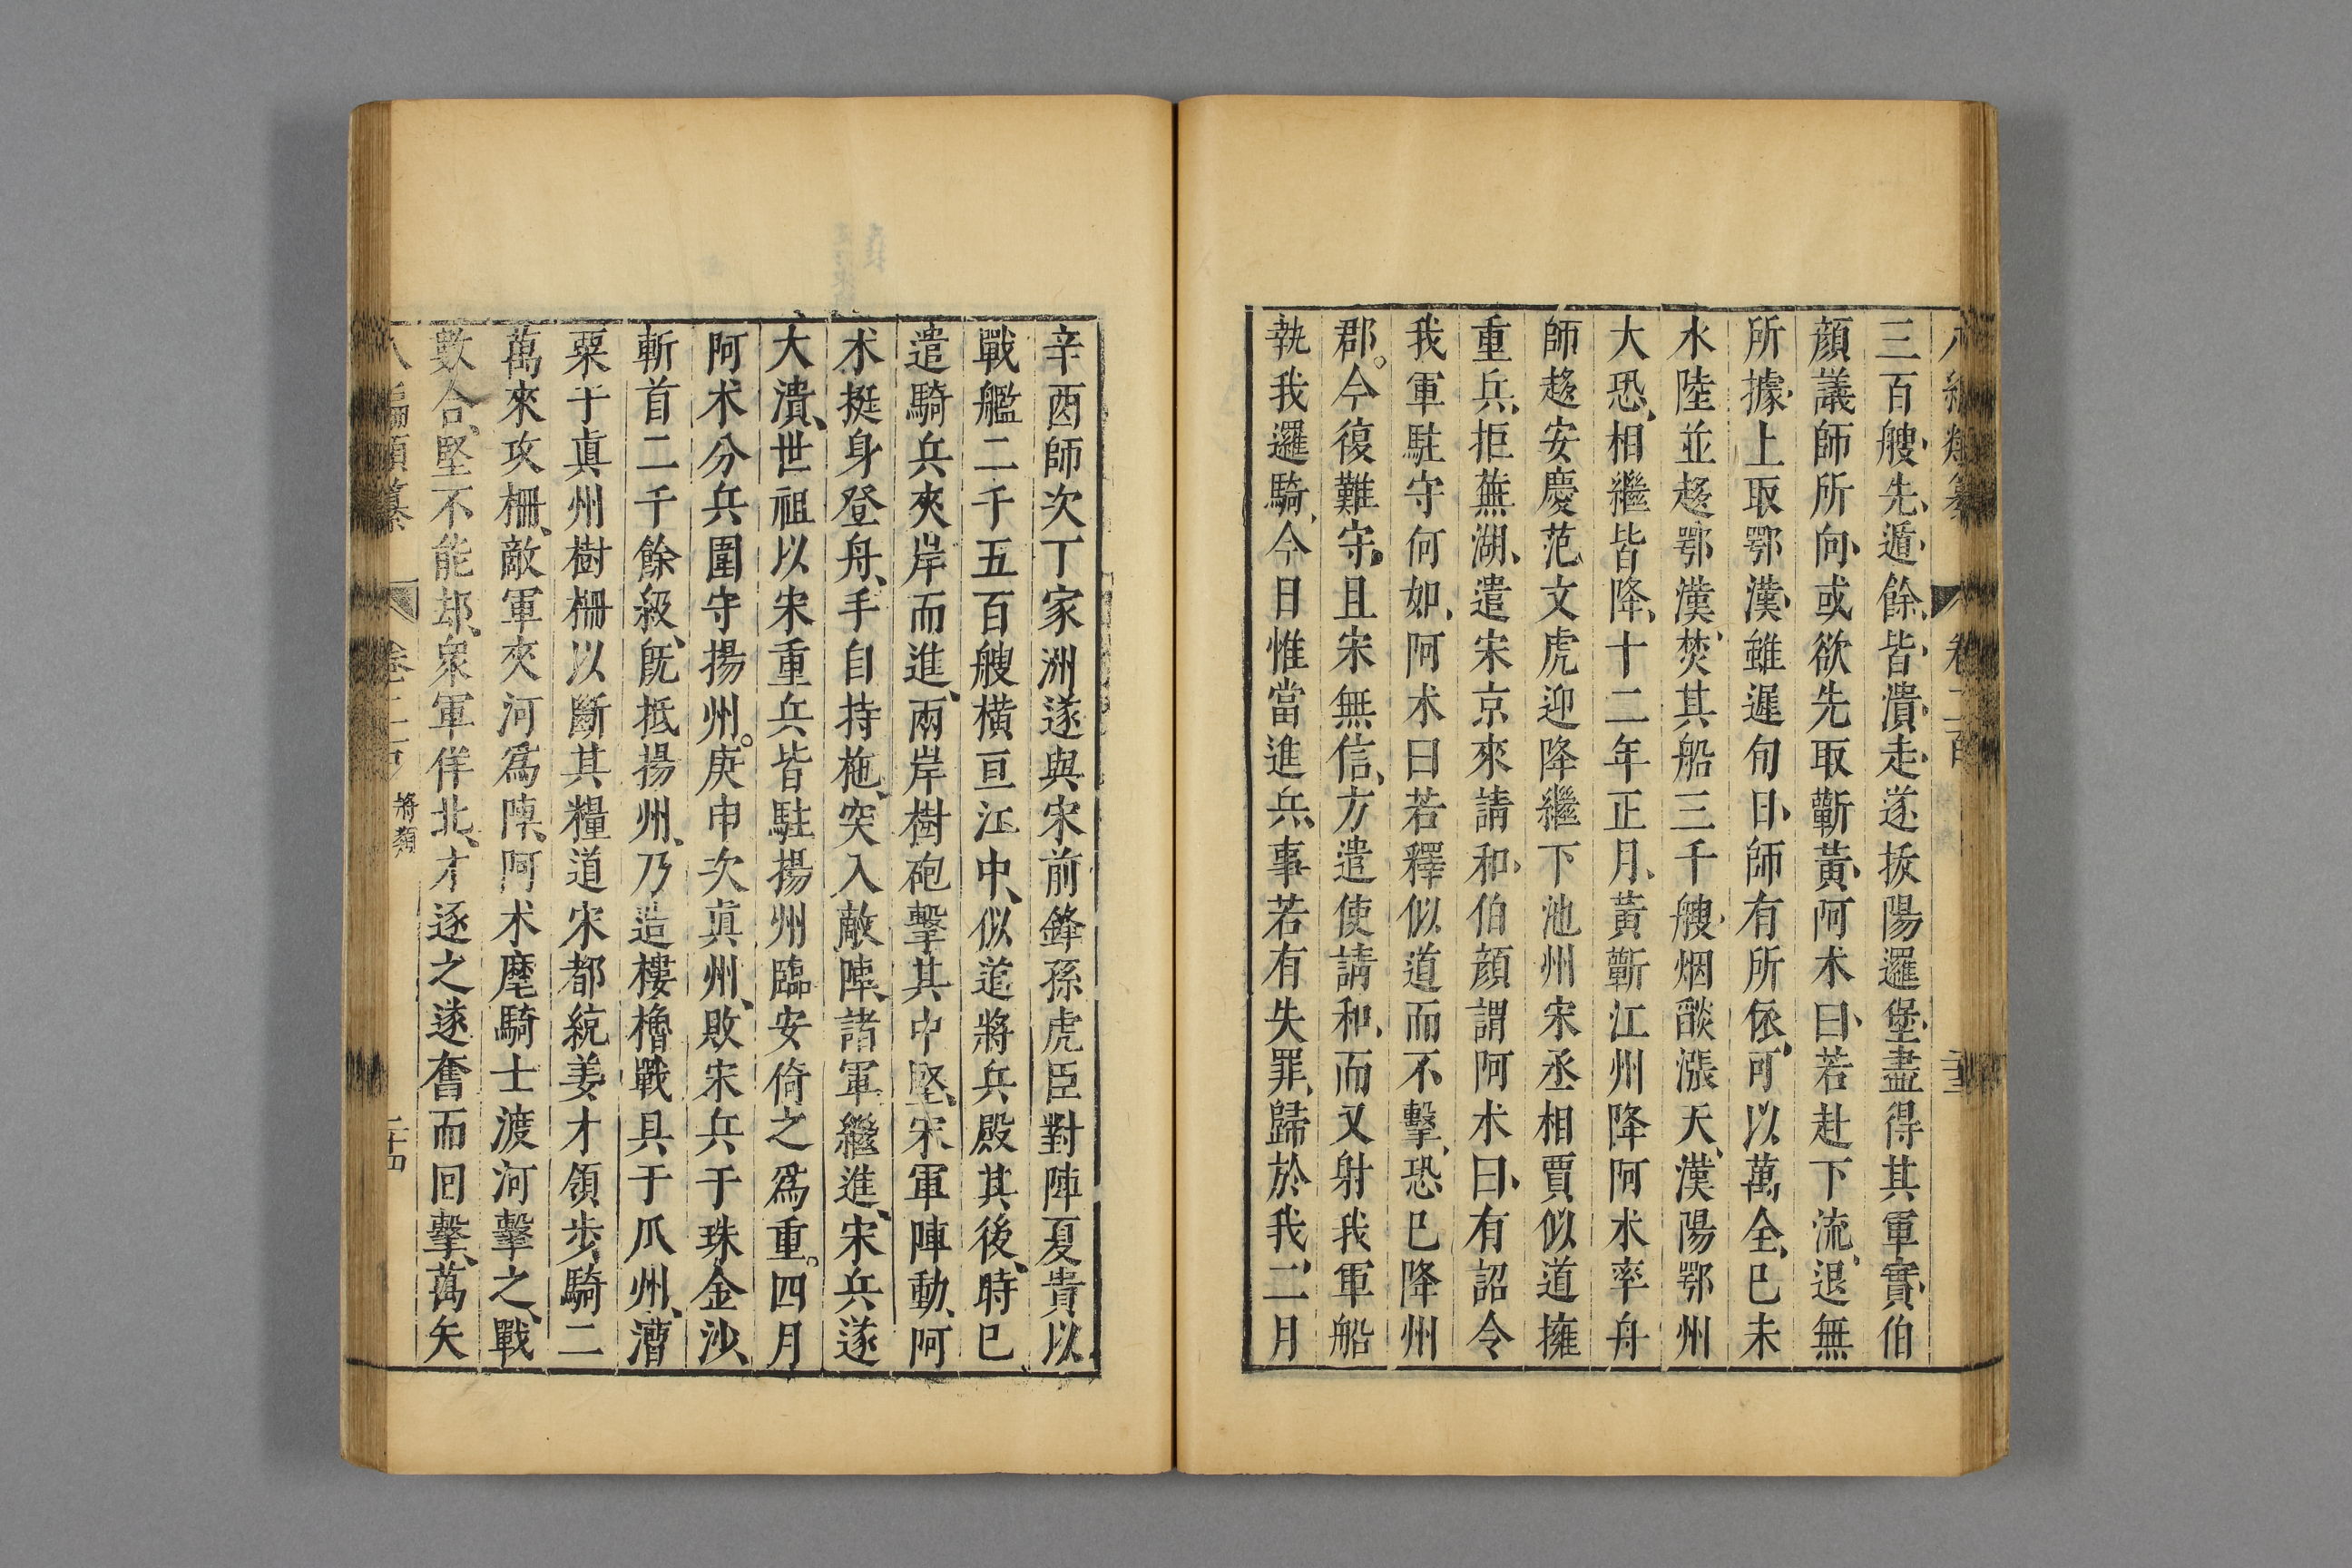 三百艘先遁餘皆潰走遂拔陽邏堡盡得其軍實伯
顔議師所向或欲先取蘄黃阿术曰若赴下流退無
所據上取鄂漢雖遲旬日師有所依可以萬全已未
水陸並趍鄂漢焚其船三千艘烟燄漲天漢陽鄂州
大恐相繼皆降十二年正月黃蘄江州降阿术率舟
師趍安慶范文虎迎降繼下池州宋丞相賈似道擁
重兵拒蕪湖遣宋京來請和伯顔謂阿术曰有詔令
我軍駐守何如阿术曰若釋似道而不擊恐已降州
郡。今復難守且宋無信方遣使請和而又射我軍船
執我邏騎今日惟當進兵事若有失罪歸於我二月
辛酉師次丁家洲遂與宋前鋒孫虎臣對陣夏貴以
戰艦二千五百艘橫亘江中似道將兵殿其後時已
遣騎兵夾岸而進兩岸樹砲擊其中堅宋軍陣動阿
术挺身登舟手自持柂突入敵陣諸軍繼進宋兵遂
大潰世祖以宋重兵皆駐揚州臨安倚之爲重。四月
阿术分兵圍守揚州。庚申次眞州敗宋兵于珠金沙
斬首二千餘級旣抵揚州乃造樓櫓戰具于瓜州漕
粟于眞州樹柵以斷其糧道宋都統姜才領步騎二
萬來攻柵敵軍夾河爲陣阿术麾騎士渡河擊之戰
數合堅不能却衆軍佯北才逐之遂奮而回擊萬矢
八編類纂 卷二百 將類 二十四